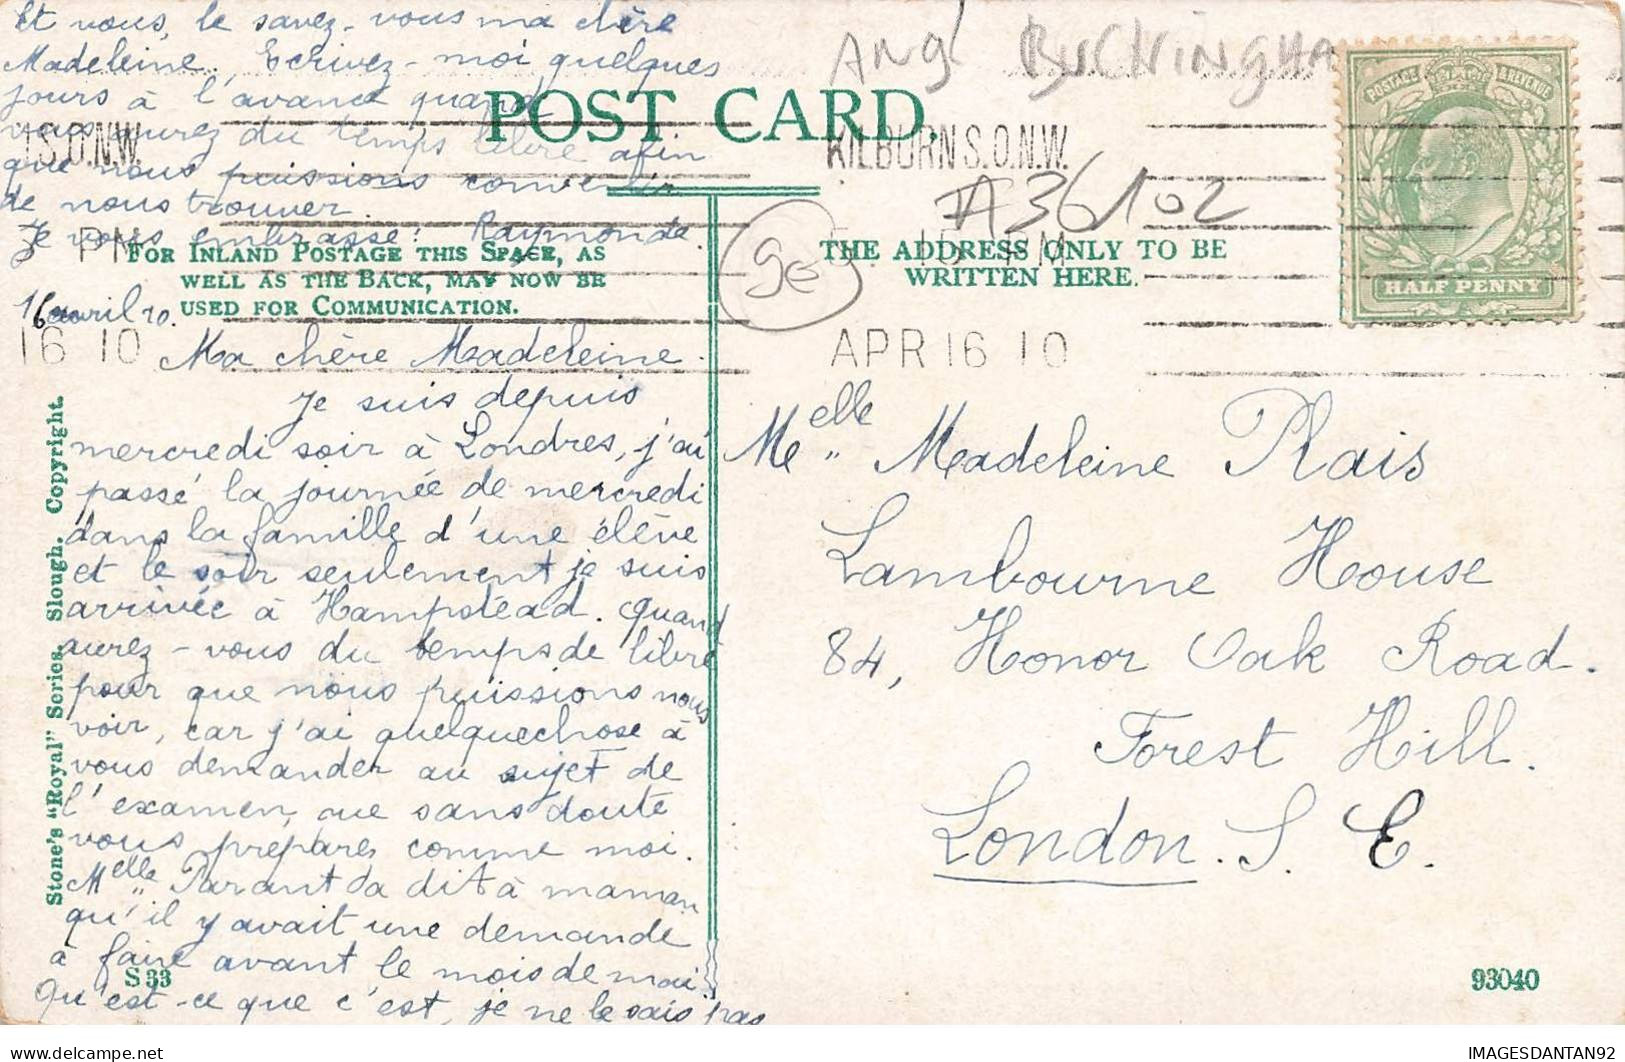 Et vous, le savez-vous ma chère
Madeleine. Ecrivez-moi quelques
jours à l'avance quand
vous aurez du temps libre afin
que nous puissions convenir
de nous trouver.
Je vous embrasse. Raymonde.
ANG BUCKINGHA
POST CARD.
S.O.N.W.
KILBURN S.O.N.W.
A36102
PM
FOR INLAND POSTAGE THIS SPACE, AS
WELL AS THE BACK, MAY NOW BE
USED FOR COMMUNICATION.
THE ADDRESS ONLY TO BE
WRITTEN HERE.
POSTAGE & REVENUE
HALF PENNY
16 10
APR 16 10
16 avril 10.
Ma chère Madeleine.
Je suis depuis
mercredi soir à Londres, j'ai
passé la journée de mercredi
dans la famille d'une élève
et le soir seulement je suis
arrivée à Hampstead. Quand
aurez-vous du temps de libre
pour que nous puissions nous
voir, car j'ai quelquechose à
vous demander au sujet de
l'examen, que sans doute
vous préparez comme moi.
Melle Parant a dit à maman
qu'il y avait une demande
à faire avant le mois de mai.
Qu'est-ce que c'est, je ne le sais pas
Melle Madeleine Plais
Lambourne House
84, Honor Oak Road.
Forest Hill.
London. S. E.
Stone's "Royal" Series. Slough. Copyright.
S 33
93040
www.delcampe.net
IMAGESDANTAN92